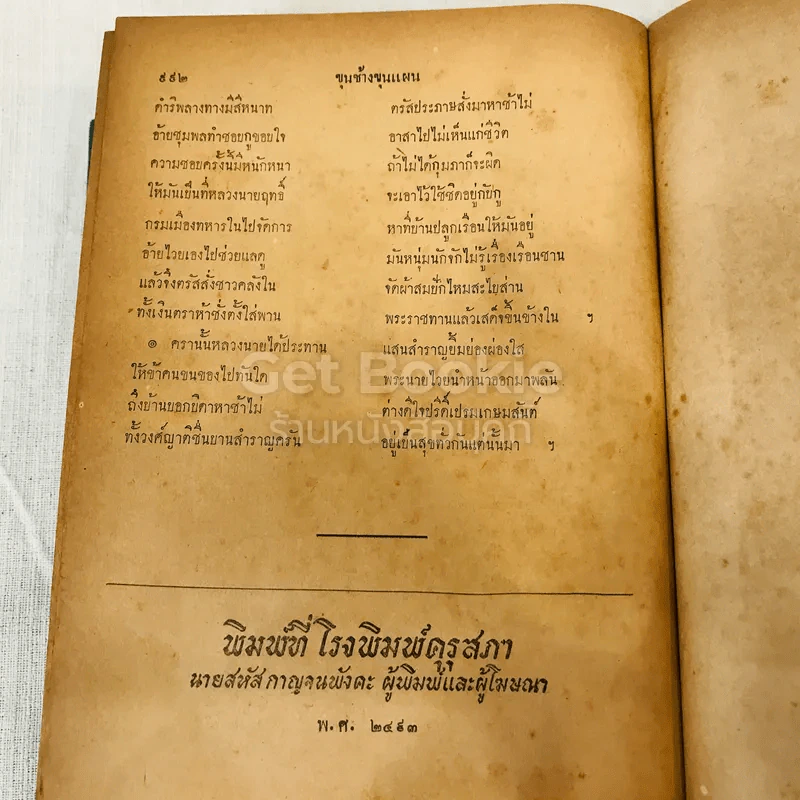 ๙๙๒ ขุนช้างขุนแผน
ดำริพลางทางมีสีหนาท ตรัสประภาษสั่งมาหาช้าไม่
อ้ายชุมพลทำชอบกูขอบใจ อาสาไปไม่เห็นแก่ชีวิต
ความชอบครั้งนี้มีหนักหนา ถ้าไม่ได้กุมภาก็จะผิด
ให้มันเป็นที่หลวงนายฤทธิ์ จะเอาไว้ใช้ชิดอยู่กับกู
กรมเมืองทหารในไปจัดการ หาที่บ้านปลูกเรือนให้มันอยู่
อ้ายไวยเองไปช่วยแลดู มันหนุ่มนักจักไม่รู้เรื่องเรือนชาน
แล้วจึ่งตรัสสั่งชาวคลังใน จัดผ้าสมปักไหมสะไบส่าน
ทั้งเงินตราห้าชั่งตั้งใส่พาน พระราชทานแล้วเสด็จขึ้นข้างใน ฯ
๏ ครานั้นหลวงนายได้ประทาน แสนสำราญยิ้มย่องผ่องใส
ให้ข้าคนขนของไปทันใด พระนายไวยนำหน้าออกมาพลัน
ถึงบ้านบอกบิดาหาช้าไม่ ต่างดีใจปรีดิ์เปรมเกษมสันต์
ทั้งวงศ์ญาติชื่นบานสำราญครัน อยู่เย็นสุขทั่วกันแต่นั้นมา ฯ
Get Bookie
ร้านหนังสือเก่า
พิมพ์ที่ โรงพิมพ์คุรุสภา
นายสหัส กาญจนพังคะ ผู้พิมพ์และผู้โฆษณา
พ.ศ. ๒๔๙๓